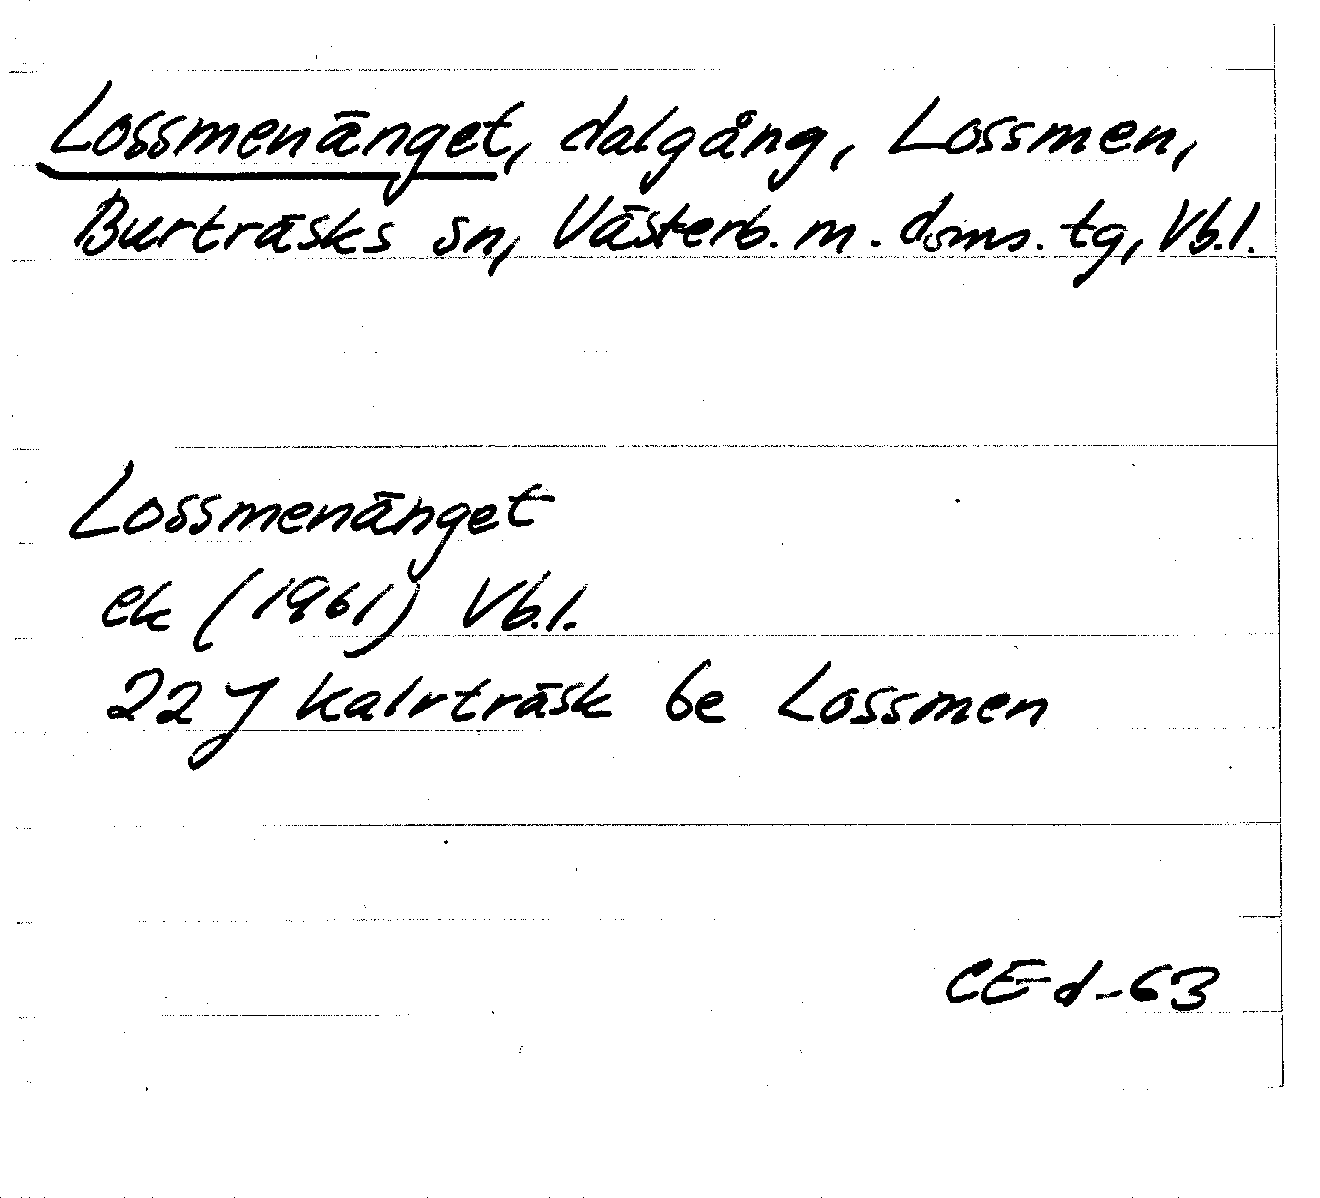 Lossmenänget, dalgång, Lossmen,
Burträsks sn, Västerb. m. doms. tg, Vb.l.
Lossmenänget
ek (1961) Vb.l.
22 J Kalvträsk 6e Lossmen
CEd-63